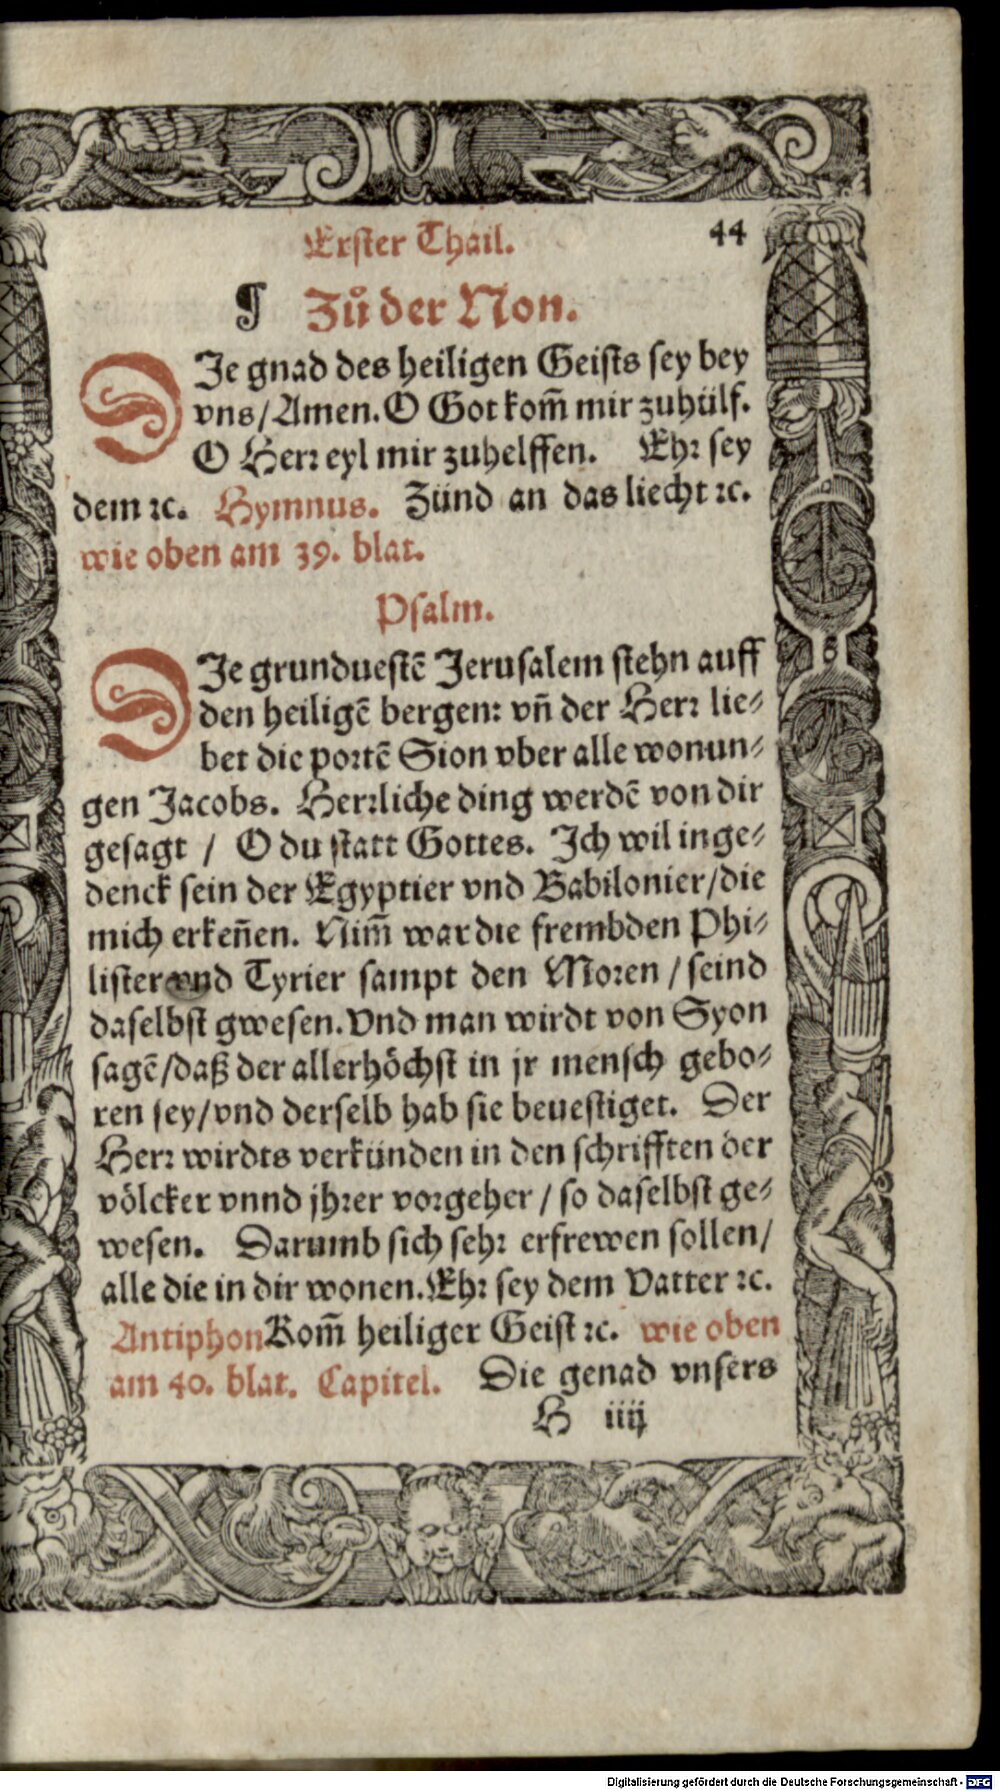 Erster Thail. 44
¶ Zůder Non.
DJe gnad des heiligen Geists sey bey
vns/Amen. O Got kom̃ mir zuhülf.
O Herꝛ eyl mir zuhelffen. Ehꝛ sey
dem ꝛc. Hymnus. Zünd an das liecht ꝛc.
wie oben am 39. blat.
Psalm.
DJe grunduestẽ Jerusalem stehn auff
den heiligẽ bergen: vñ der Herꝛ lie⸗
bet die poꝛtẽ Sion vber alle wonun⸗
gen Jacobs. Herꝛliche ding werdẽ von dir
gesagt / O du statt Gottes. Jch wil inge⸗
denck sein der Egyptier vnd Babilonier/die
mich erkeñen. Nim̃ war die frembden Phi⸗
lister vnd Tyrier sampt den Moꝛen / seind
daselbst gwesen. Vnd man wirdt von Syon
sagẽ/daß der allerhöchst in jr mensch gebo⸗
ren sey/vnd derselb hab sie beuestiget. Der
Herꝛ wirdts verkünden in den schrifften der
völcker vnnd jhꝛer voꝛgeher / so daselbst ge⸗
wesen. Darumb sich sehꝛ erfrewen sollen/
alle die in dir wonen. Ehꝛ sey dem Vatter ꝛc.
Antiphon Kom̃ heiliger Geist ꝛc. wie oben
am 40. blat. Capitel. Die genad vnsers
H iiij
Digitalisierung gefördert durch die Deutsche Forschungsgemeinschaft - DFG